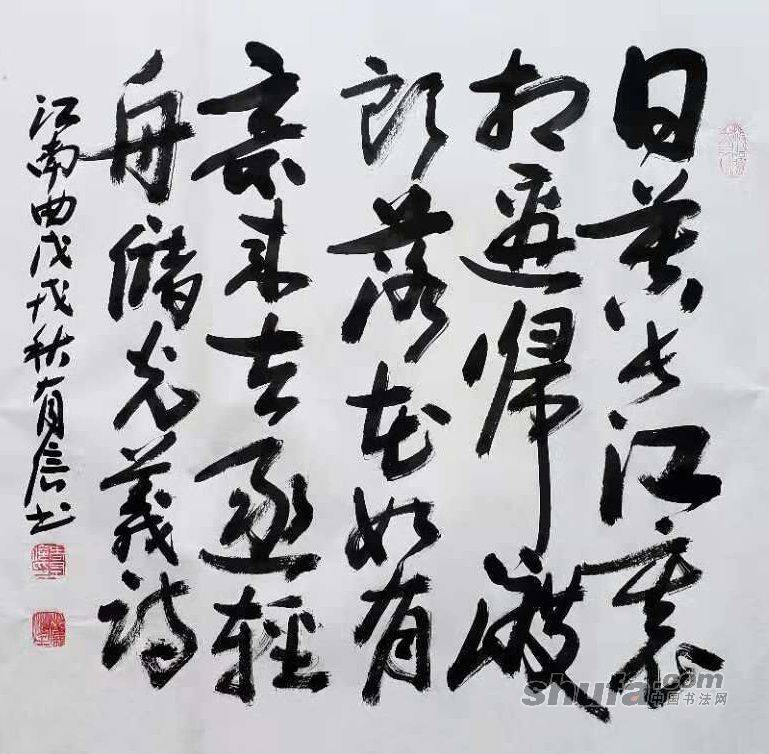 日暮长江裏
相邀帰渡
头落花如有
意来去逐輕
舟儲光義詩
江南曲戊戌秋有书
shufa.com
中国书法网